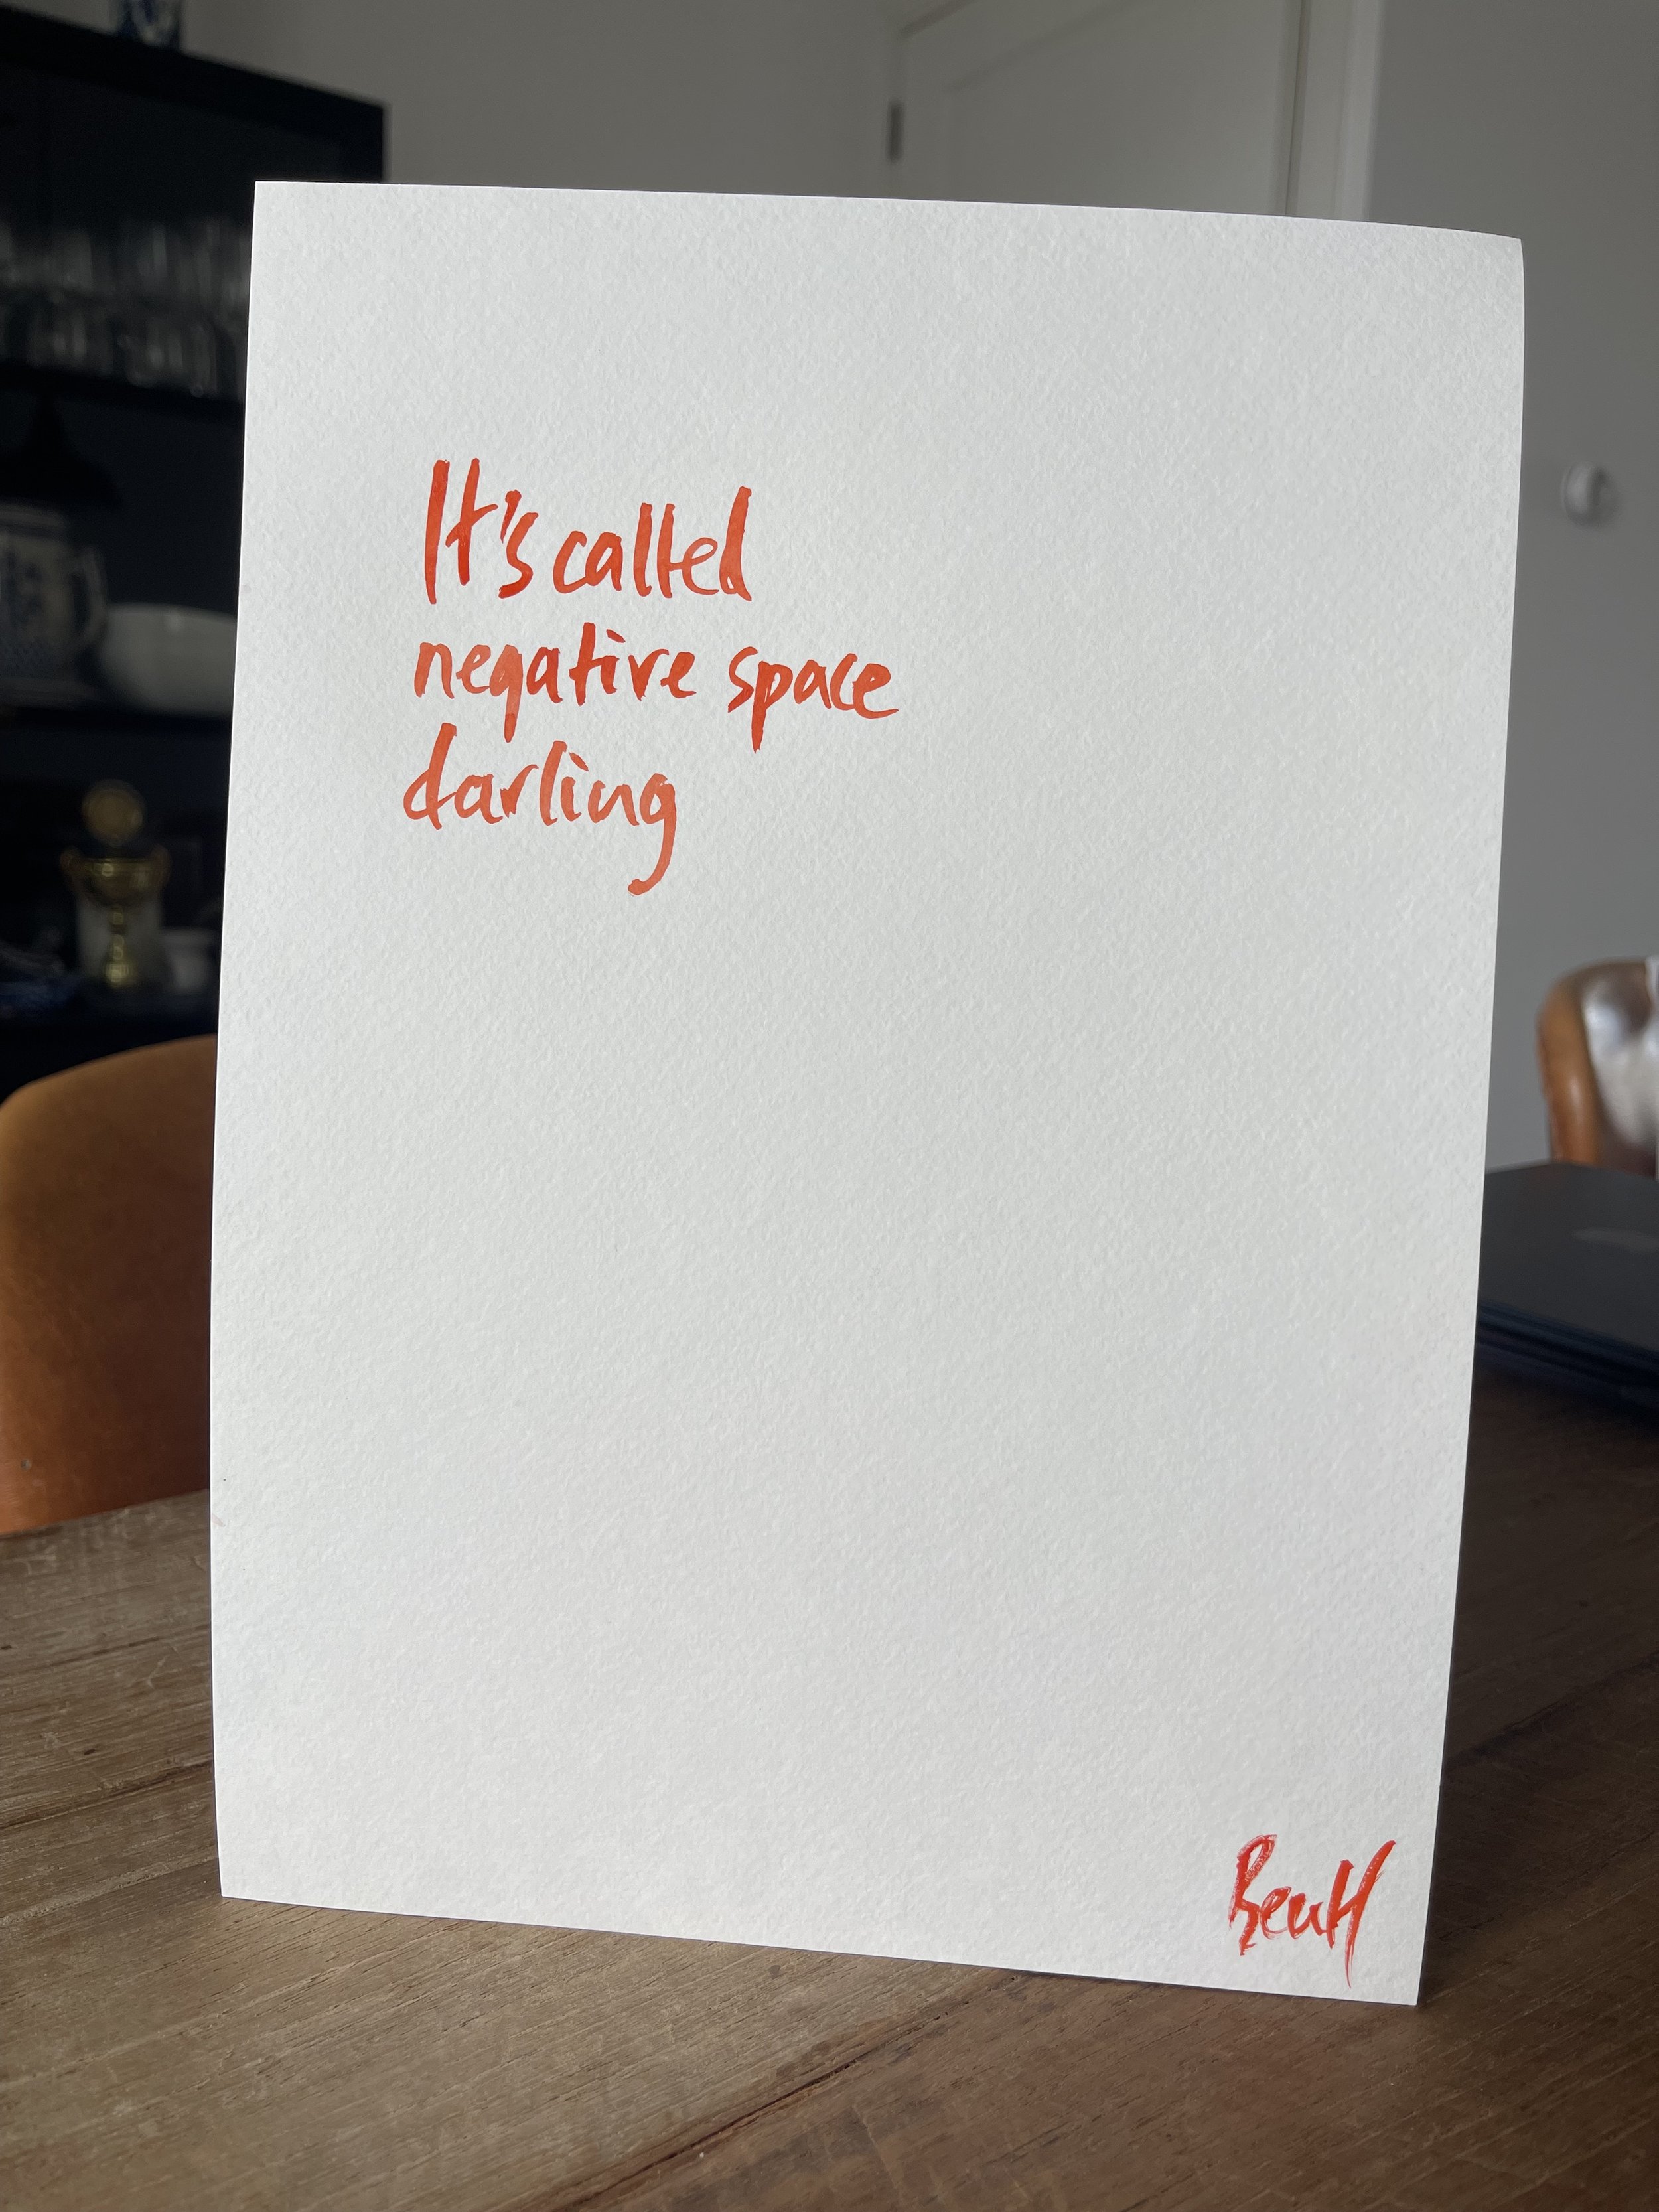 It's called
negative space
darling
BenH